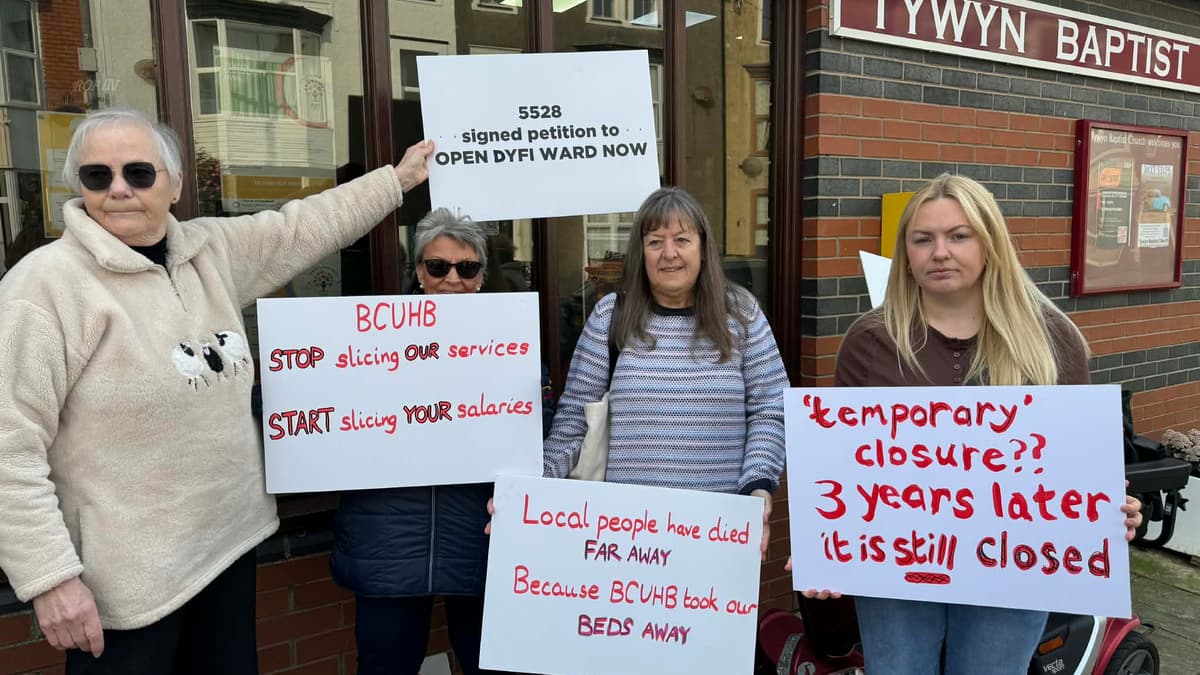 TYWYN BAPTIST
5528
signed petition to
OPEN DYFI WARD NOW
Tywyn Baptist Church welcomes you
BCUHB
STOP slicing OUR services
START slicing YOUR salaries
'temporary'
closure??
3 years later
it is still closed
Local people have died
FAR AWAY
Because BCUHB took our
BEDS AWAY
vecta